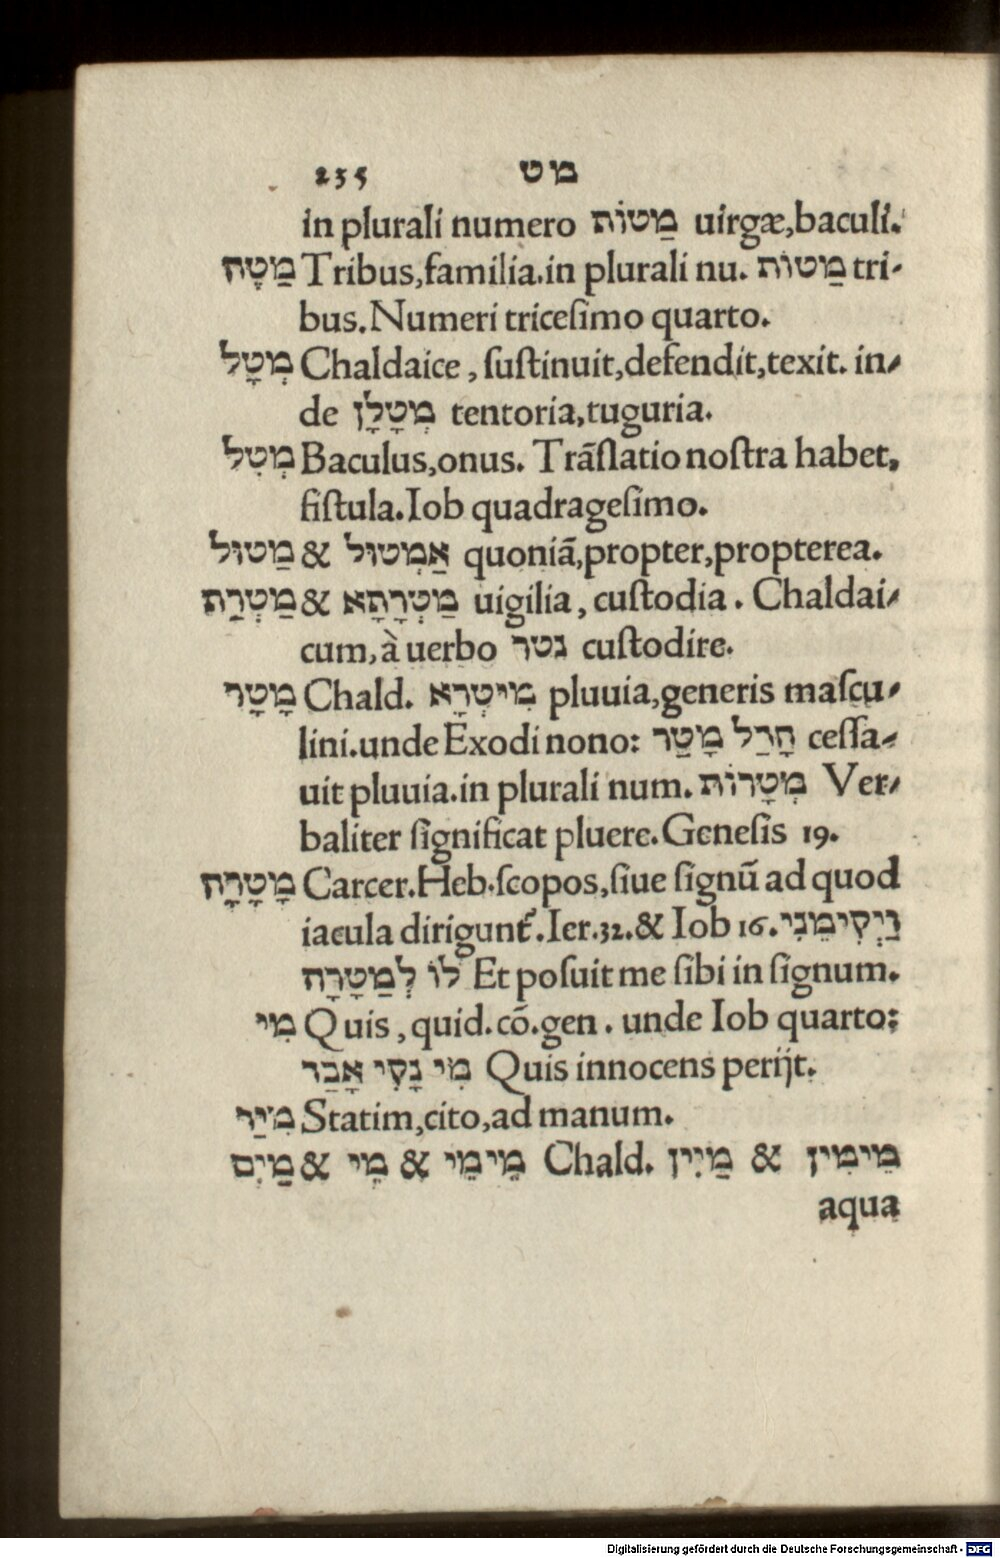 235 מט
in plurali numero מַטּוֹת uirgæ,baculi.
מַטֶּה Tribus,familia.in plurali nu. מַטּוֹת tri-
bus.Numeri triceſimo quarto.
מְטָל Chaldaice, ſuſtinuit,defendit,texit. in-
de מְטָלָן tentoria,tuguria.
מְטִל Baculus,onus. Trãſlatio noſtra habet,
fiſtula.Iob quadrageſimo.
מַטוּל & אַמְטוּל quoniã,propter,propterea.
מַטְרַת & מַטְרָתָא uigilia, cuſtodia. Chaldai-
cum, à uerbo נטר cuſtodire.
מָטָר Chald. מִיטְרָא pluuia,generis maſcu-
lini.unde Exodi nono: חָדַל מָטַר ceſſa-
uit pluuia.in plurali num. מְטָרוֹת Ver-
baliter ſignificat pluere.Geneſis 19.
מָטָרָה Carcer.Heb.ſcopos,ſiue ſignũ ad quod
iacula dirigunt᷑.Ier.32.& Iob 16. וַיְקִימֵנִי
לוֹ לְמַטָרָה Et poſuit me ſibi in ſignum.
מִי Quis, quid.cõ.gen. unde Iob quarto:
מִי נָקִי אָבַד Quis innocens perijt.
מִיַּד Statim,cito,ad manum.
מַיִם & מֵי & מֵימֵי Chald. מַיִין & מֵימִין
aqua
Digitalisierung gefördert durch die Deutsche Forschungsgemeinschaft - DFG